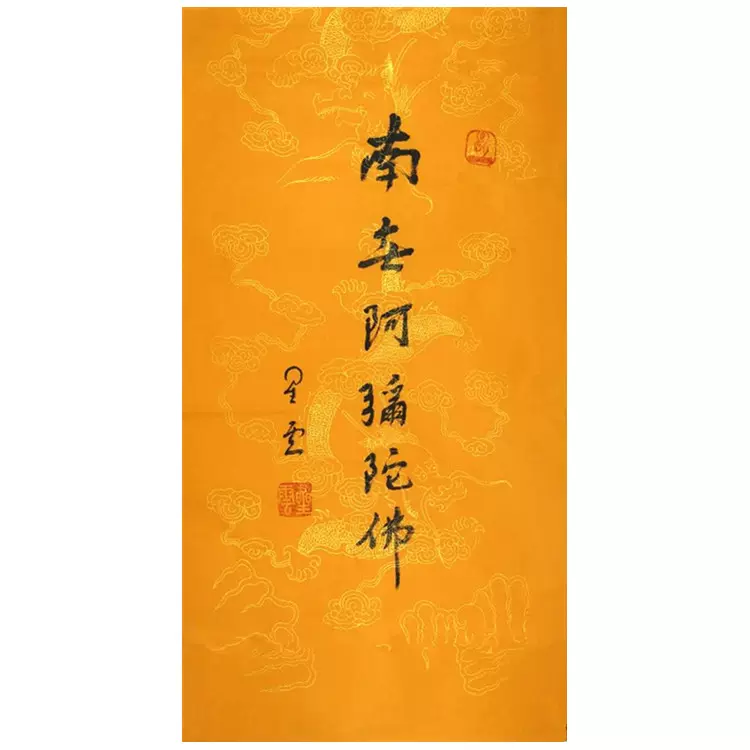 南无阿彌陀佛
星雲
星雲